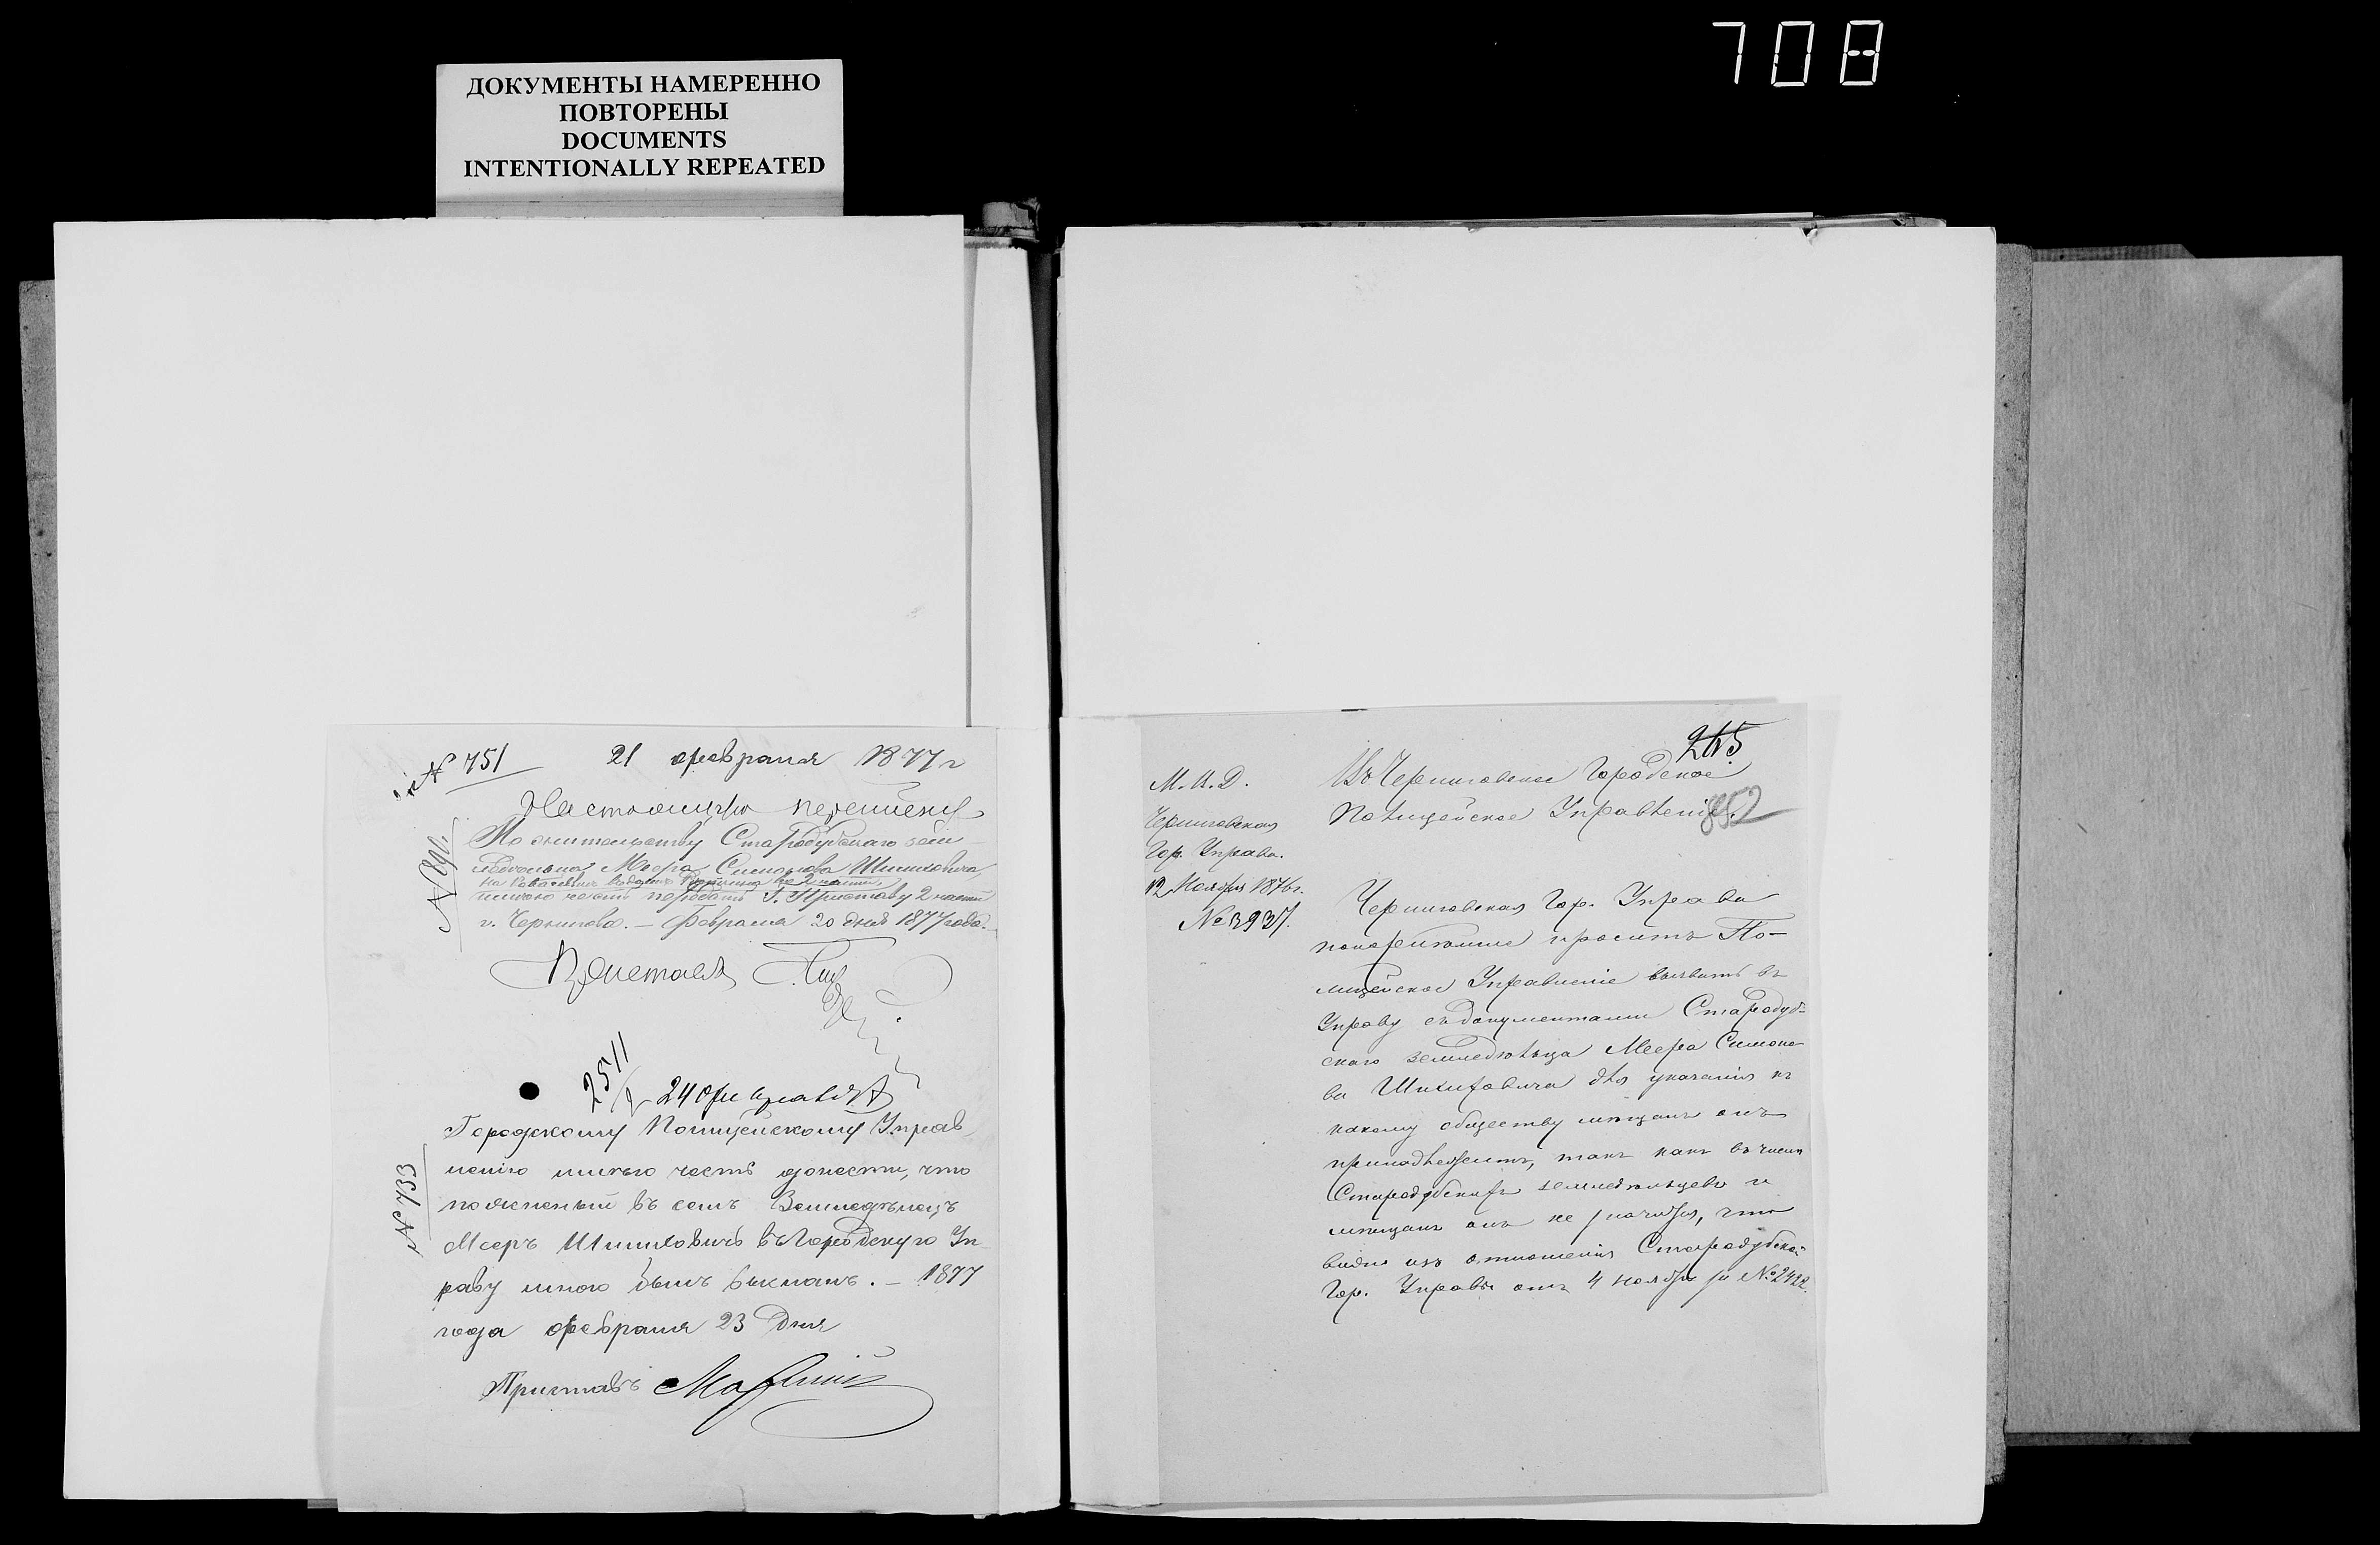 708
ДОКУМЕНТЫ НАМЕРЕННО
ПОВТОРЕНЫ
DOCUMENTS
INTENTIONALLY REPEATED
№ 751 21 февраля 1877 г
Настоящую переписку
По жительству Стародубскаго зем-
Меера Симонова
имею честь передать Г. Приставу 2 части
г. Чернигова. — Февраля 20 дня 1877 года.
Приставъ
2511
24 февраля
Городскому Полицейскому Управ
№ 733
ленію имѣю честь донести, что
поясненый въ семъ Земледѣлецъ
Мееръ въ Городскую Уп
раву мною былъ высланъ. — 1877
года февраля 23 Дня
Приставъ
265
М. В. Д.
Черниговская
Гор. Управа.
12 Ноября 1876 г.
№ 3937.
Въ Черниговское Городское
Полицейское Управленіе.
852
Черниговская Гор. Управа
покорнѣйше проситъ По-
лицейское Управленіе вызвать въ
Управу съ документами Стародуб-
скаго земледѣльца Меера Симоно-
ва для указанія къ
какому обществу мѣщанъ онъ
принадлежитъ, такъ какъ въ числѣ
Стародубскихъ земледѣльцевъ и
мѣщанъ онъ не значится, что
видно изъ отношенія Стародубской
Гор. Управы отъ 4 ноября за № 2422.